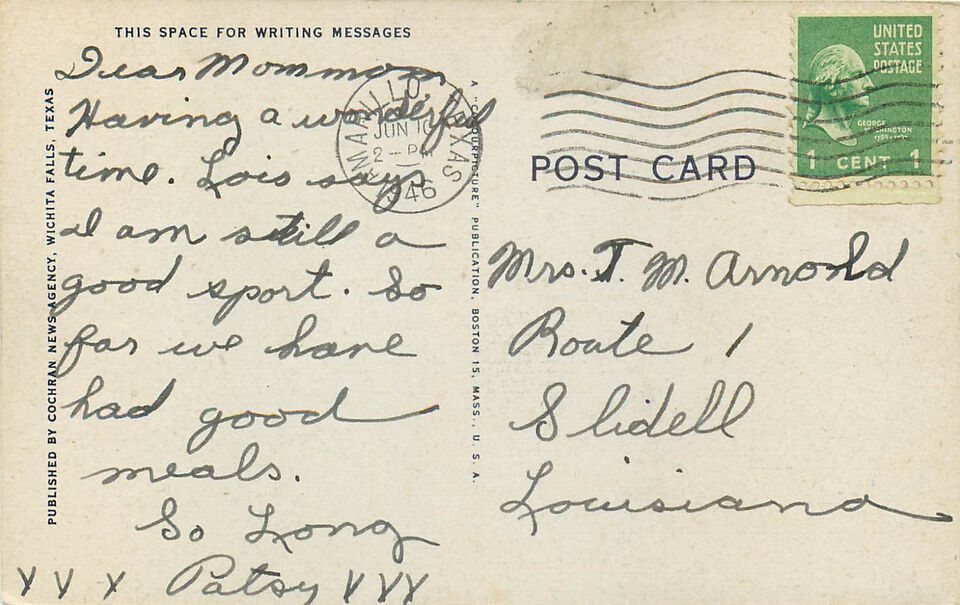 THIS SPACE FOR WRITING MESSAGES
Dear Mommom,
Having a wonderful
time. Lois says
I am still a
good sport. So
far we have
had good
meals.
So Long
X X X Patsy X X X
PUBLISHED BY COCHRAN NEWS AGENCY, WICHITA FALLS, TEXAS
A "COLOURPICTURE" PUBLICATION, BOSTON 15, MASS., U. S. A.
AMARILLO, TEXAS
JUN 10
2-PM
1946
UNITED
STATES
POSTAGE
GEORGE
WASHINGTON
1 CENT 1
POST CARD
Mrs. T. M. Arnold
Route 1
Slidell
Louisiana